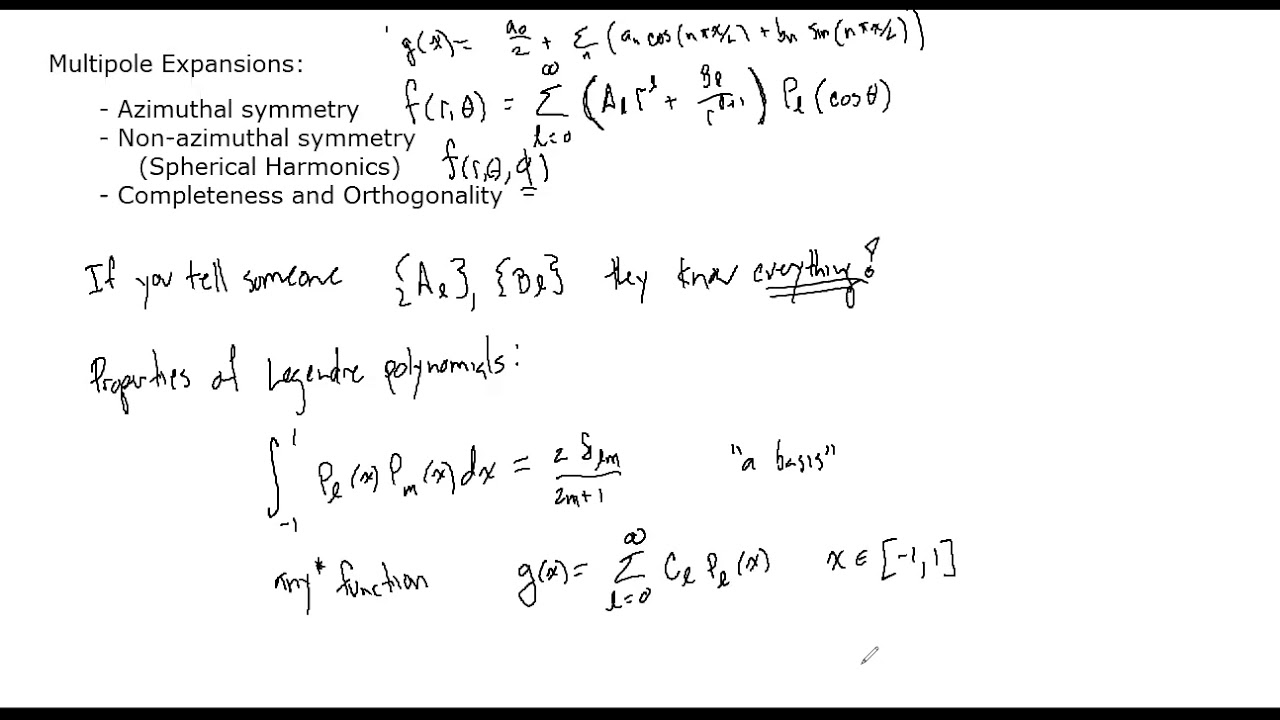 g(x) = a0/2 + Σn (an cos(nπx/L) + bn sin(nπx/L))
Multipole Expansions:
- Azimuthal symmetry
f(r,θ) = Σ_{l=0}^{∞} (A_l r^l + B_l/r^{l+1}) P_l (cosθ)
- Non-azimuthal symmetry
(Spherical Harmonics)
f(r,θ,φ)
- Completeness and Orthogonality
If you tell someone {A_l}, {B_l} they know everything!
Properties of Legendre polynomials:
∫_{-1}^{1} P_l(x) P_m(x) dx = 2 δ_{lm} / 2m+1 "a basis"
any* function g(x) = Σ_{l=0}^{∞} C_l P_l(x) x ∈ [-1, 1]